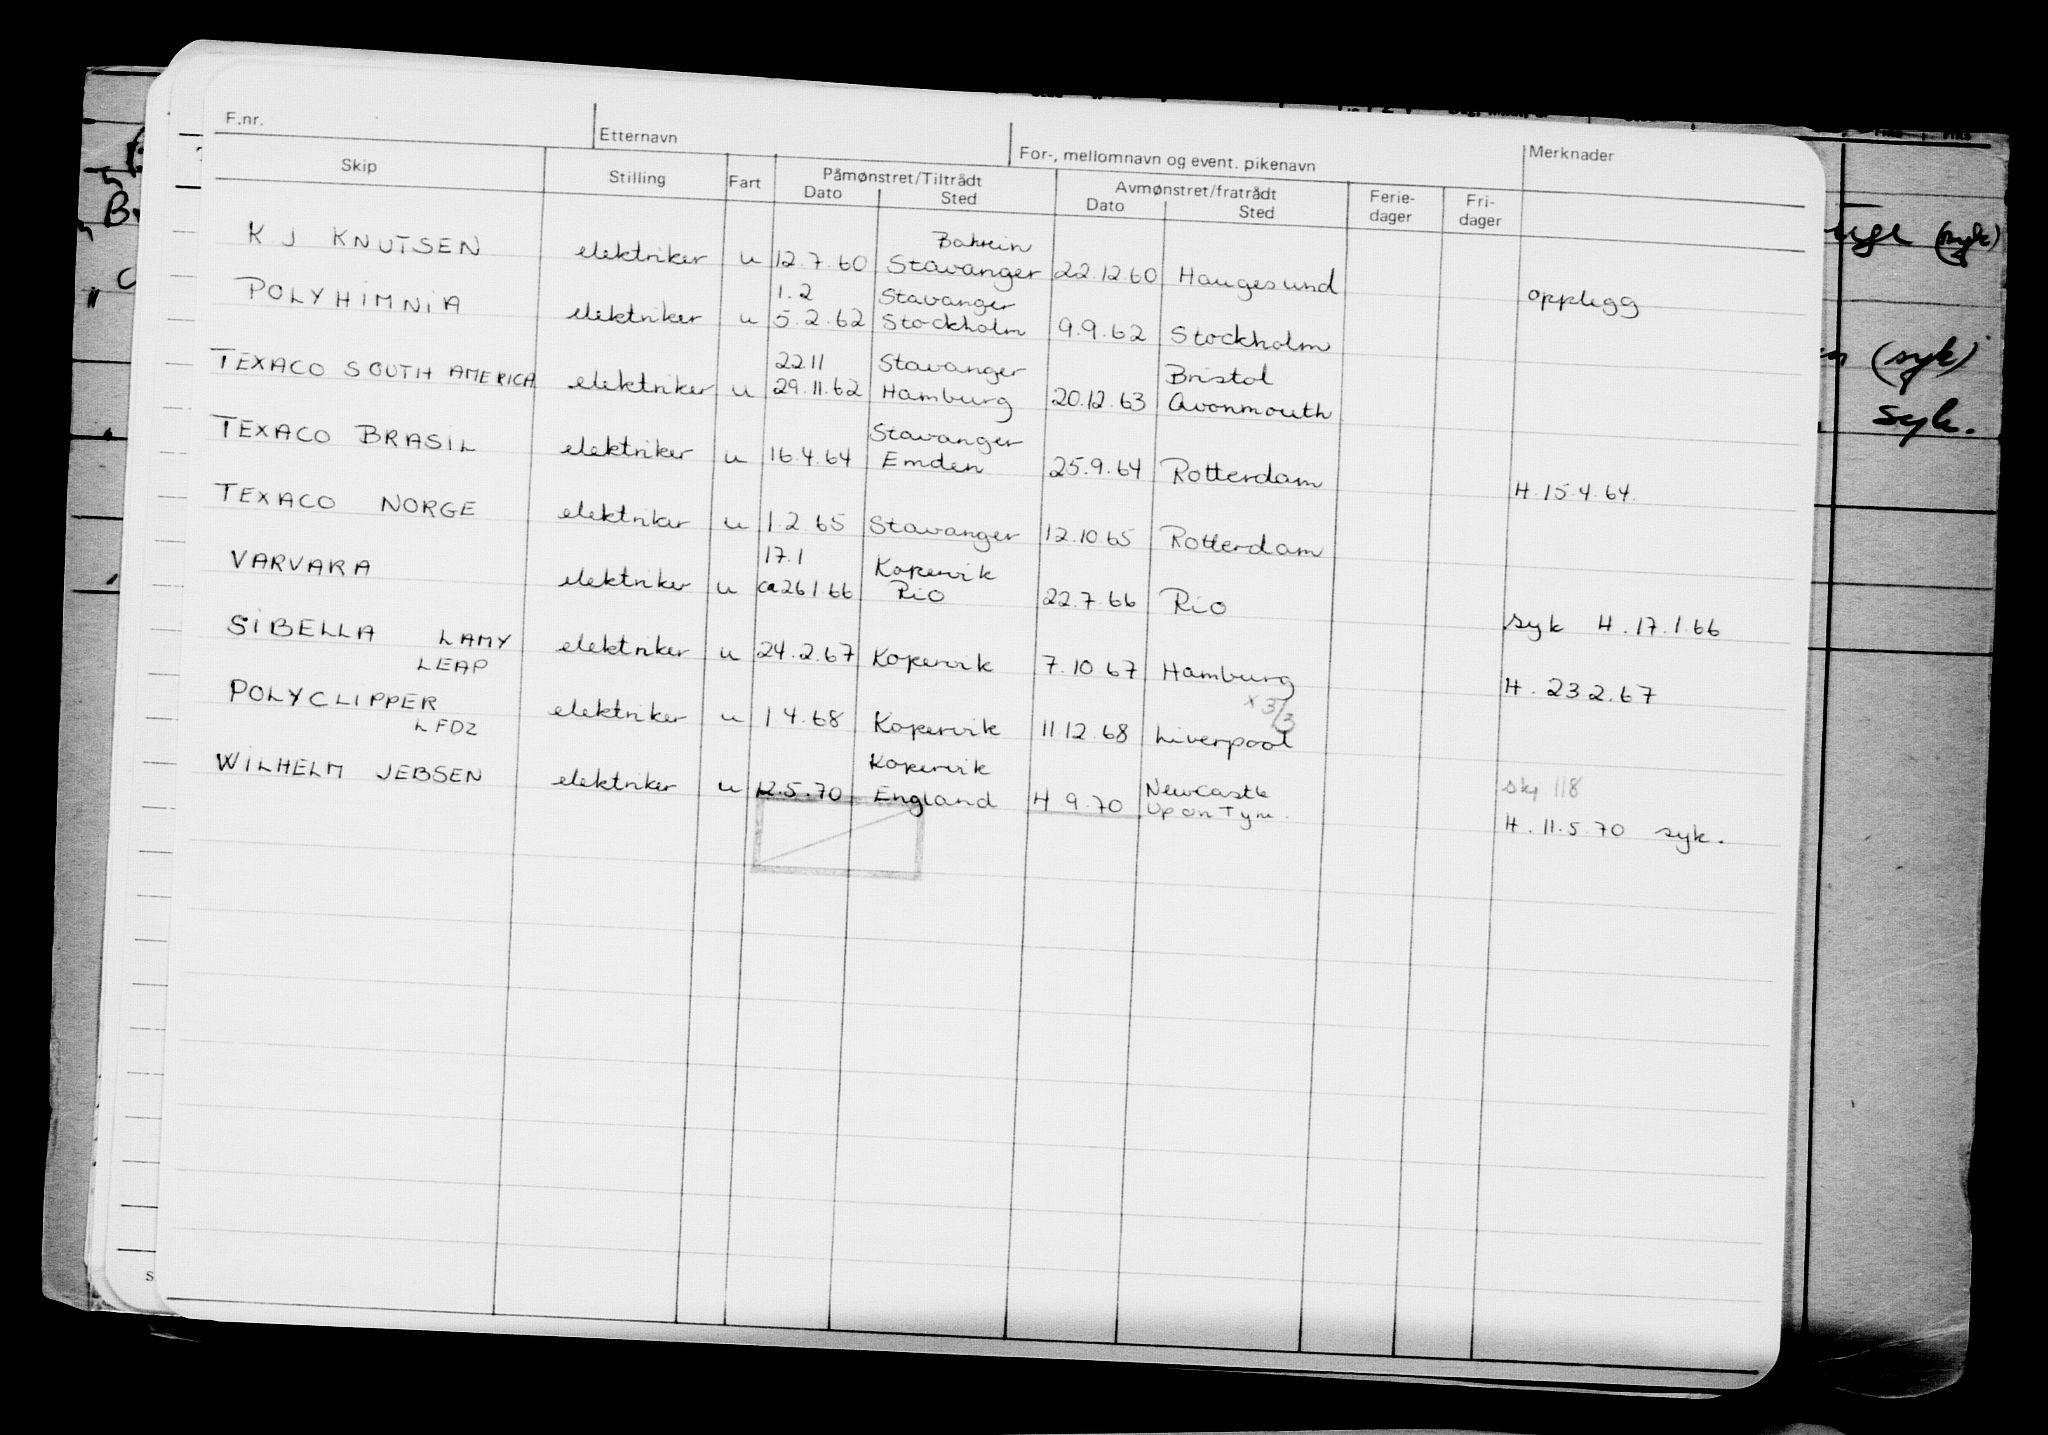 F.nr. Etternavn For-, mellomnavn og event. pikenavn Merknader
Skip Stilling Fart Påmønstret/Tiltrådt Avmønstret/fratrådt Ferie-dager Fri-dager
Dato Sted Dato Sted
Bahrein
K J KNUTSEN elektriker u 12.7.60 Stavanger 22.12.60 Haugesund opplegg
1.2 Stavanger
POLYHIMNIA elektriker u 5.2.62 Stockholm 9.9.62 Stockholm
22.11 Stavanger Bristol
TEXACO SOUTH AMERICA elektriker u 29.11.62 Hamburg 20.12.63 Avonmouth
Stavanger
TEXACO BRASIL elektriker u 16.4.64 Emden 25.9.64 Rotterdam H.15.4.64.
TEXACO NORGE elektriker u 1.2.65 Stavanger 12.10.65 Rotterdam
17.1 Kopervik
VARVARA elektriker u ca 26.1.66 Rio 22.7.66 Rio syk H.17.1.66
SIBELLA LAMY elektriker u 24.2.67 Kopervik 7.10.67 Hamburg H. 23 2.67
LEAP
x 3/3
POLYCLIPPER elektriker u 1 4.68 Kopervik 11.12.68 Liverpool
LFDZ
Kopervik Newcastle
WILHELM JEBSEN elektriker u 12.5.70 England 4 9.70 Upon Tyne. 118
H. 11.5.70 syk.
(syk)
(syk)
syk.